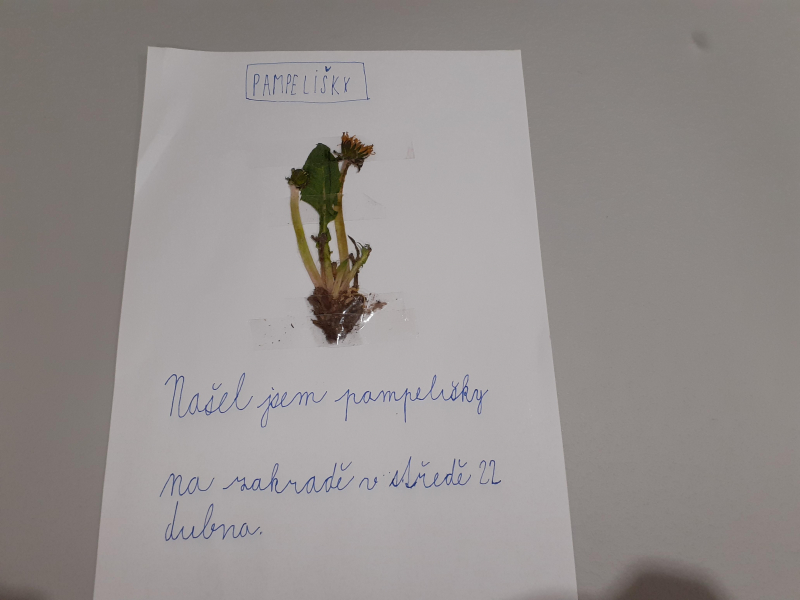 PAMPELIŠKY
Našel jsem pampelišky
na zahradě v středě 22
dubna.